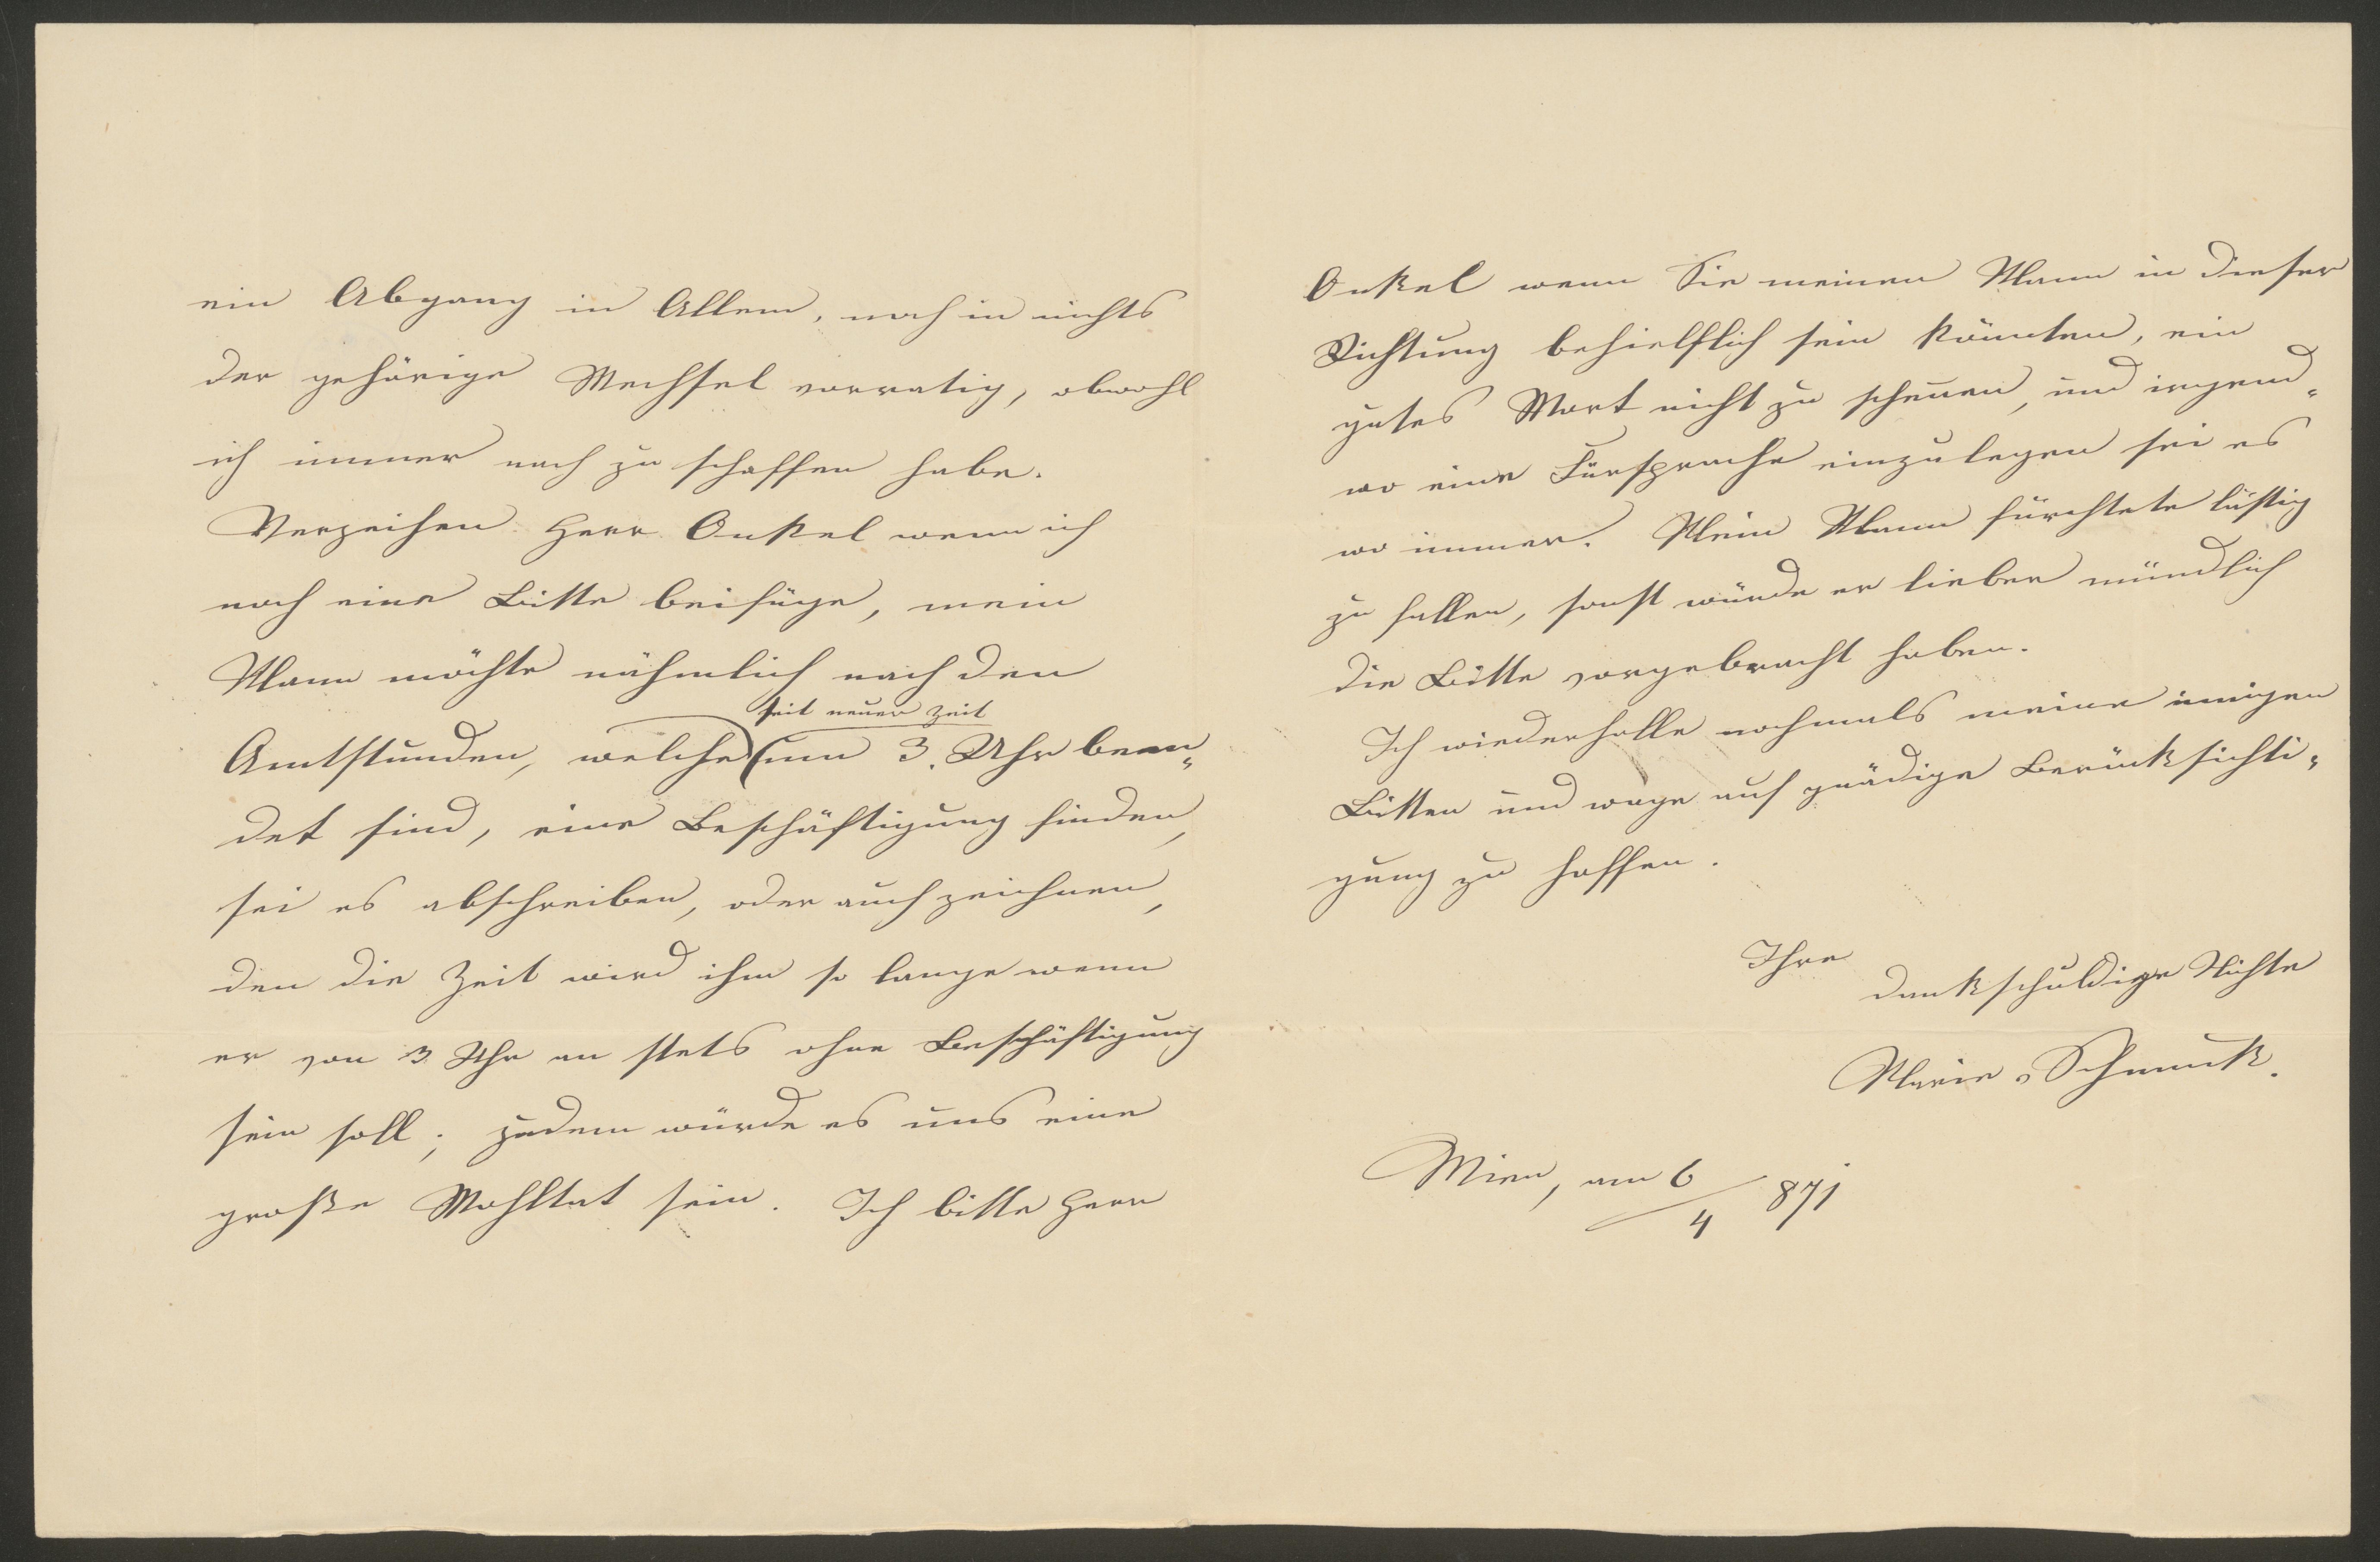 ein Abgang in Allem, noch in nichts
der gehörige Wechsel vorratig, obwohl
ich immer nach zu schaffen habe.
Verzeihen Herr Onkel wenn ich
noch eine Bitte beifüge, mein
Mann möchte nähmlich nach den
seit neuer Zeit
Amtstunden, welche (um 3. Uhr been„
det sind, eine Beschäftigung finden,
sei es abschreiben, oder auch zeichnen,
den die Zeit wird ihm so lange wenn
er von 3 Uhr an stets ohne Beschäftigung
sein soll; zudem würde es uns eine
große Wohltat sein. Ich bitte Herr
Onkel wenn Sie meinen Mann in dieser
Richtung behielflich sein könnten, ein
gutes Wort nicht zu scheuen, und irgend„
wo eine Fürsprache einzulegen sei es
wo immer. Mein Mann fürchtete lästig
zu fallen, sonst würde er lieber mündlich
die Bitte vorgebracht haben.
Ich wiederholle nochmals meine innigen
Bitten und wage auf gnädige Berücksichti„
gung zu hoffen.
Ihre
dankschuldige Nichte
Marie Schmuck.
Wien, am 6/4 871